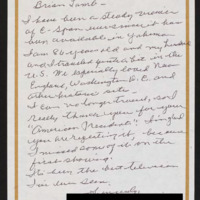 Brian Lamb -
I have been a steady viewer
of C-Span ever since it has
been available in Yakima.
I am 86 years old and my husband
and I traveled quite a bit in the
U.S. We especially loved New
England, Washington D.C. and
other historic sites.
I can no longer travel, so I
really thank you for your
"American Presidents". I'm glad
you are repeating it, because
I missed some of it on the
first showing.
It's been the best television
I've ever seen.
Sincerely,